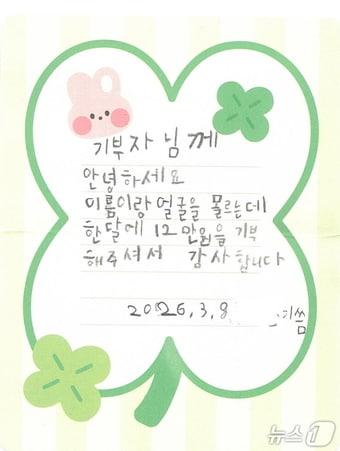 기부자님께
안녕하세요
이름이랑 얼굴을 몰르는데
한달에 12만원을 기부
해주셔서 감사합니다
2026.3.8.
씀
뉴스1